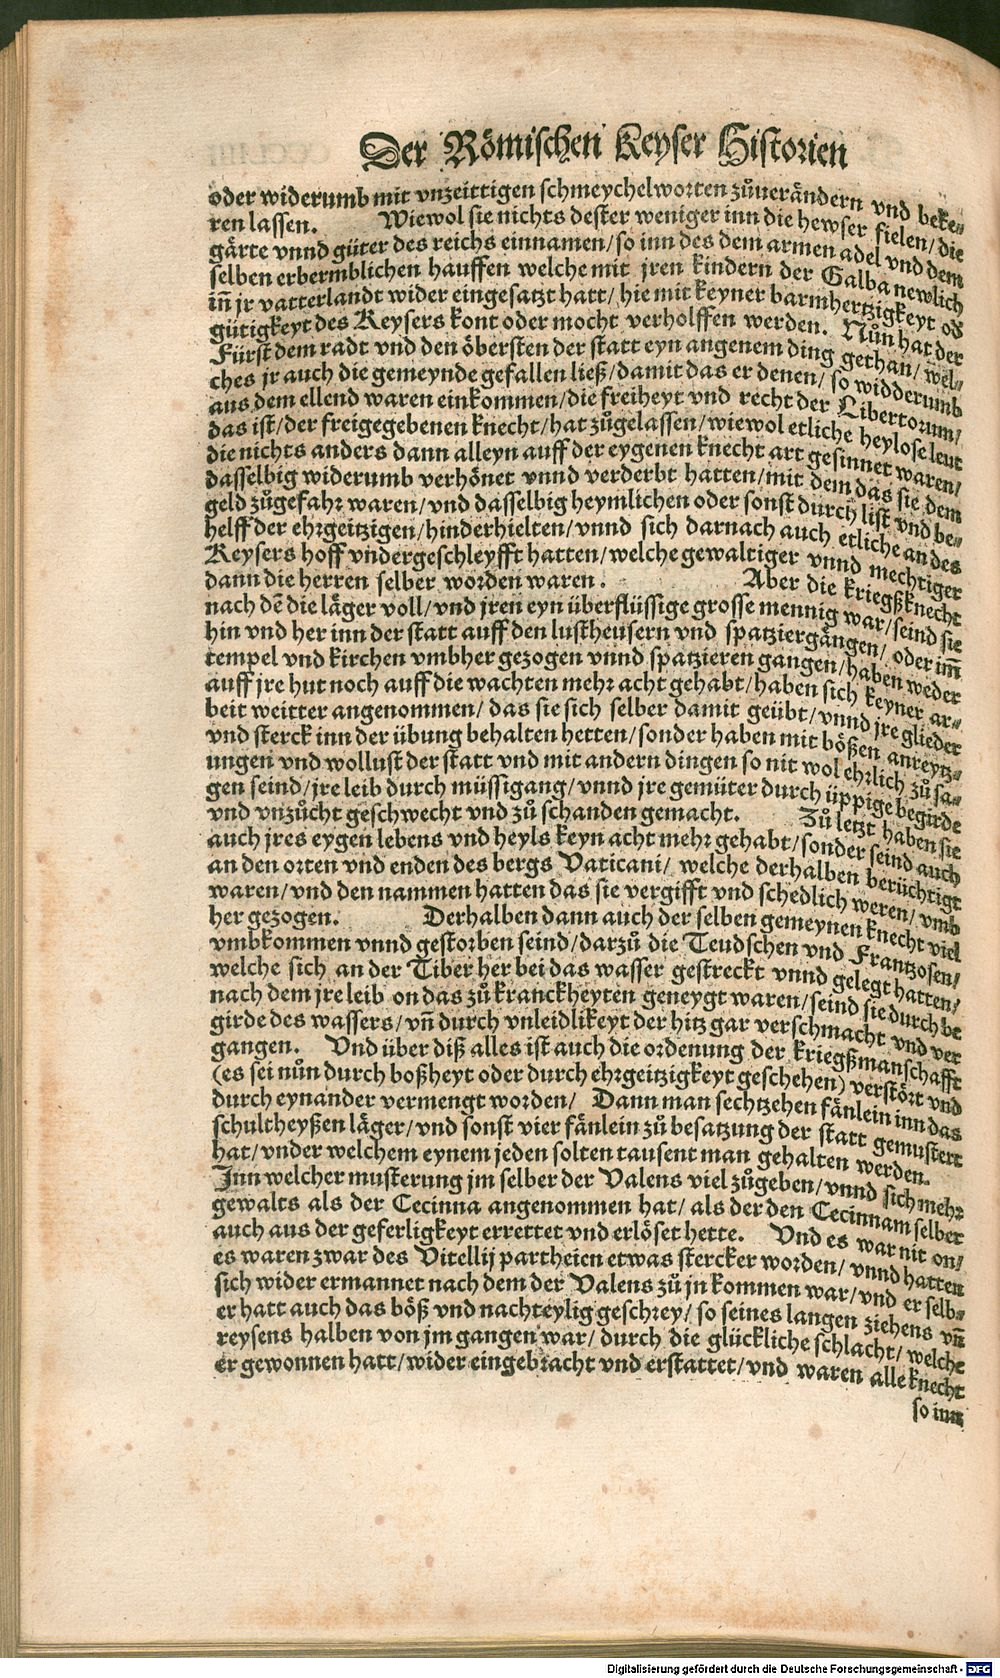 Der Römischen Keyser Historien
oder widerumb mit vnzeittigen schmeychelworten zůuerändern vnd beke⸗
ren lassen. Wiewol sie nichts dester weniger inn die hewser fielen/die
gärte vnnd güter des reichs einnamen/so inn des dem armen adel vnd dem
selben erbermblichen hauffen welche mit jren kindern der Galba newlich
iñ jr vatterlandt wider eingesatzt hatt/hie mit keyner barmhertzigkeyt od
gütigkeyt des Keysers kont oder mocht verholffen werden. Nůn hat der
Fürst dem radt vnd den öbersten der statt eyn angenem ding gethan/wel⸗
ches jr auch die gemeynde gefallen ließ/damit das er denen/so widderumb
aus dem ellend waren einkommen/die freiheyt vnd recht der Libertorum/
das ist/der freigegebenen knecht/hat zůgelassen/wiewol etliche heylose leut
die nichts anders dann alleyn auff der eygenen knecht art gesinnet waren/
dasselbig widerumb verhönet vnnd verderbt hatten/mit dem das sie dem
geld zůgefahr waren/vnd dasselbig heymlichen oder sonst durch list vnd be⸗
helff der ehrgeitzigen/hinderhielten/vnnd sich darnach auch etliche an des
Keysers hoff vndergeschleyfft hatten/welche gewaltiger vnnd mechtiger
dann die herren selber worden waren. Aber die kriegßknecht
nach dē die läger voll/vnd jren eyn überflüssige grosse mennig war/seind sie
hin vnd her inn der statt auff den lustheusern vnd spatziergängen/oder im̄
tempel vnd kirchen vmbher gezogen vnnd spatzieren gangen/haben weder
auff jre hut noch auff die wachten mehr acht gehabt/haben sich keyner ar⸗
beit weitter angenommen/das sie sich selber damit geübt/vnnd jre glieder
vnd sterck inn der übung behalten hetten/sonder haben mit bößen anreytz⸗
ungen vnd wollust der statt vnd mit andern dingen so nit wol ehrlich zů sa⸗
gen seind/jre leib durch müssigang/vnnd jre gemüter durch üppige begirde
vnd vnzůcht geschwecht vnd zů schanden gemacht. Zů letzt haben sie
auch jres eygen lebens vnd heyls keyn acht mehr gehabt/sonder seind auch
an den orten vnd enden des bergs Vaticani/welche derhalben berüchtigt
waren/vnd den nammen hatten das sie vergifft vnd schedlich weren/vmb
her gezogen. Derhalben dann auch der selben gemeynen knecht viel
vmbkommen vnnd gestorben seind/darzů die Teudschen vnd Frantzosen/
welche sich an der Tiber her bei das wasser gestreckt vnnd gelegt hatten/
nach dem jre leib on das zů kranckheyten geneygt waren/seind sie durch be
girde des wassers/vñ durch vnleidlikeyt der hitz gar verschmacht vnd ver
gangen. Vnd über diß alles ist auch die ordenung der kriegßmanschafft
(es sei nůn durch boßheyt oder durch ehrgeitzigkeyt geschehen) verstört vnd
durch eynander vermengt worden/ Dann man sechtzehen fänlein inn das
schultheyßen läger/vnd sonst vier fänlein zů besatzung der statt gemustert
hat/vnder welchem eynem jeden solten tausent man gehalten werden.
Inn welcher musterung jm selber der Valens viel zůgeben/vnnd sich mehr
gewalts als der Cecinna angenommen hat/als der den Cecinnam selber
auch aus der geferligkeyt errettet vnd erlöset hette. Vnd es war nit on/
es waren zwar des Vitellij partheien etwas stercker worden/vnnd hatten
sich wider ermannet nach dem der Valens zů jn kommen war/vnd er selb⸗
er hatt auch das böß vnd nachteylig geschrey/so seines langen ziehens vñ
reysens halben von jm gangen war/durch die glückliche schlacht/welche
er gewonnen hatt/wider eingebracht vnd erstattet/vnd waren alle knecht
so inn
Digitalisierung gefördert durch die Deutsche Forschungsgemeinschaft - DFG